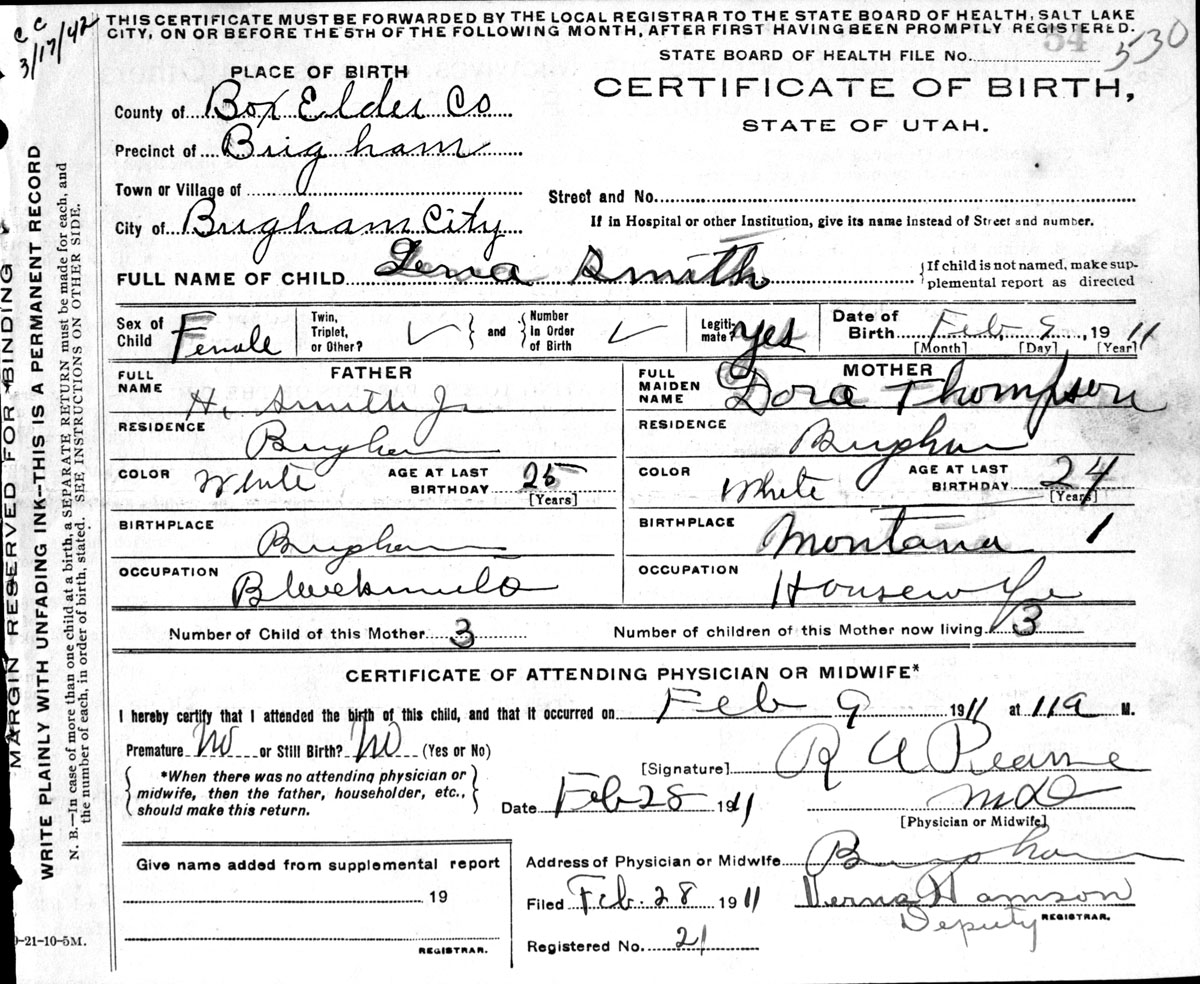 C C
3/17/42
THIS CERTIFICATE MUST BE FORWARDED BY THE LOCAL REGISTRAR TO THE STATE BOARD OF HEALTH, SALT LAKE
CITY, ON OR BEFORE THE 5TH OF THE FOLLOWING MONTH, AFTER FIRST HAVING BEEN PROMPTLY REGISTERED.
54
STATE BOARD OF HEALTH FILE No. 530
PLACE OF BIRTH
CERTIFICATE OF BIRTH,
STATE OF UTAH.
County of Box Elder Co
Precinct of Brigham
Town or Village of
Street and No.
City of Brigham City
If in Hospital or other Institution, give its name instead of Street and number.
FULL NAME OF CHILD Smith
{If child is not named, make sup-
plemental report as directed
Sex of Child Female
Twin, Triplet, or Other? ✓ } and { Number In Order of Birth ✓
Legiti-mate? Yes
Date of Birth Feb 9, 1911
[Month] [Day] [Year]
FATHER
FULL NAME H. Smith Jr
RESIDENCE Brigham
COLOR White AGE AT LAST BIRTHDAY 25 [Years]
BIRTHPLACE Brigham
OCCUPATION Blacksmith
MOTHER
FULL MAIDEN NAME Dora Thompson
RESIDENCE Brigham
COLOR White AGE AT LAST BIRTHDAY 24 [Years]
BIRTHPLACE Montana 1
OCCUPATION Housewife
Number of Child of this Mother 3 Number of children of this Mother now living 3
CERTIFICATE OF ATTENDING PHYSICIAN OR MIDWIFE*
I hereby certify that I attended the birth of this child, and that it occurred on Feb 9 1911 at 11 a M.
Premature No or Still Birth? No (Yes or No)
{*When there was no attending physician or
midwife, then the father, householder, etc.,
should make this return.}
[Signature] R A Pearse
MD
[Physician or Midwife]
Date Feb 28 1911
Give name added from supplemental report
19
REGISTRAR.
Address of Physician or Midwife Brigham
Filed Feb. 28 1911
Deputy REGISTRAR.
Registered No. 21
MARGIN RESERVED FOR BINDING
WRITE PLAINLY WITH UNFADING INK--THIS IS A PERMANENT RECORD
N. B.—In case of more than one child at a birth, a SEPARATE RETURN must be made for each, and
the number of each, in order of birth, stated. SEE INSTRUCTIONS ON OTHER SIDE.
-21-10-5M.